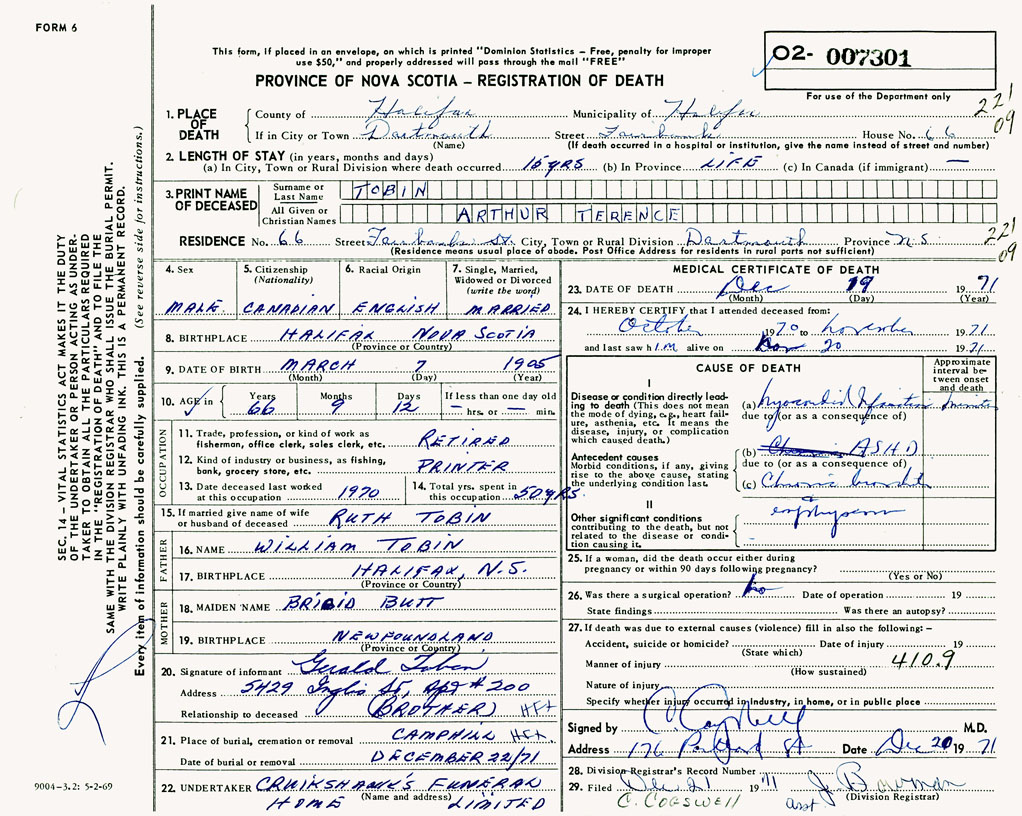 FORM 6
This form, if placed in an envelope, on which is printed "Dominion Statistics – Free, penalty for improper
use $50," and properly addressed will pass through the mail "FREE"
PROVINCE OF NOVA SCOTIA – REGISTRATION OF DEATH
O2- 007301
For use of the Department only
221
09
1. PLACE OF DEATH
County of Halifax Municipality of Halifax
If in City or Town Dartmouth Street Fairbanks House No. 66
(Name) (If death occurred in a hospital or institution, give the name instead of street and number)
2. LENGTH OF STAY (in years, months and days)
(a) In City, Town or Rural Division where death occurred 15 yrs (b) In Province LIFE (c) In Canada (if immigrant) —
3. PRINT NAME OF DECEASED
Surname or Last Name TOBIN
All Given or Christian Names ARTHUR TERENCE
RESIDENCE No. 66 Street Fairbanks St. City, Town or Rural Division Dartmouth Province N.S.
(Residence means usual place of abode. Post Office Address for residents in rural parts not sufficient)
221
09
SEC. 14 – VITAL STATISTICS ACT MAKES IT THE DUTY
OF THE UNDERTAKER OR PERSON ACTING AS UNDER-
TAKER TO OBTAIN ALL THE PARTICULARS REQUIRED
IN THE "REGISTRATION OF DEATH" AND TO FILE THE
SAME WITH THE DIVISION REGISTRAR WHO SHALL ISSUE THE BURIAL PERMIT.
WRITE PLAINLY WITH UNFADING INK. THIS IS A PERMANENT RECORD.
Every item of information should be carefully supplied. (See reverse side for instructions.)
4. Sex
MALE
5. Citizenship (Nationality)
CANADIAN
6. Racial Origin
ENGLISH
7. Single, Married, Widowed or Divorced (write the word)
MARRIED
8. BIRTHPLACE HALIFAX NOVA SCOTIA
(Province or Country)
9. DATE OF BIRTH MARCH 7 1905
(Month) (Day) (Year)
10. AGE in Years 66 Months 9 Days 12 If less than one day old — hrs. or — min.
OCCUPATION
11. Trade, profession, or kind of work as fisherman, office clerk, sales clerk, etc. RETIRED
12. Kind of industry or business, as fishing, bank, grocery store, etc. PRINTER
13. Date deceased last worked at this occupation 1970
14. Total yrs. spent in this occupation 50 YRS.
15. If married give name of wife or husband of deceased RUTH TOBIN
FATHER
16. NAME WILLIAM TOBIN
17. BIRTHPLACE HALIFAX, N.S.
(Province or Country)
MOTHER
18. MAIDEN NAME BRIGID BUTT
19. BIRTHPLACE NEWFOUNDLAND
(Province or Country)
20. Signature of informant Gerald Tobin
Address 5429 Inglis St, Apt # 200
Relationship to deceased (BROTHER) HFX
21. Place of burial, cremation or removal CAMPHILL HFX.
Date of burial or removal DECEMBER 22/71
22. UNDERTAKER CRUIKSHANK'S FUNERAL
(Name and address)
HOME LIMITED
9004-3.2: 5-2-69
MEDICAL CERTIFICATE OF DEATH
23. DATE OF DEATH Dec 19 1971
(Month) (Day) (Year)
24. I HEREBY CERTIFY that I attended deceased from:
October 1970 to november 1971
and last saw him alive on Nov 20 1971
CAUSE OF DEATH
Approximate interval between onset and death
I
Disease or condition directly leading to death (This does not mean the mode of dying, e.g., heart failure, asthenia, etc. It means the disease, injury, or complication which caused death.)
(a) Myocardial Infarction minutes
due to (or as a consequence of)
Antecedent causes
Morbid conditions, if any, giving rise to the above cause, stating the underlying condition last.
(b) ASHD
due to (or as a consequence of)
(c) Chronic bronchitis
&
emphysema
II
Other significant conditions contributing to the death, but not related to the disease or condition causing it.
25. If a woman, did the death occur either during pregnancy or within 90 days following pregnancy?
(Yes or No)
26. Was there a surgical operation? No Date of operation 19
State findings Was there an autopsy?
27. If death was due to external causes (violence) fill in also the following: –
Accident, suicide or homicide? Date of injury 19
(State which)
Manner of injury 410.9
(How sustained)
Nature of injury
Specify whether injury occurred in industry, in home, or in public place
Signed by Campbell M.D.
Address 176 Portland St Date Dec 20 1971
28. Division Registrar's Record Number
29. Filed Dec 21 1971 J. Bowman
C. COGSWELL asst (Division Registrar)